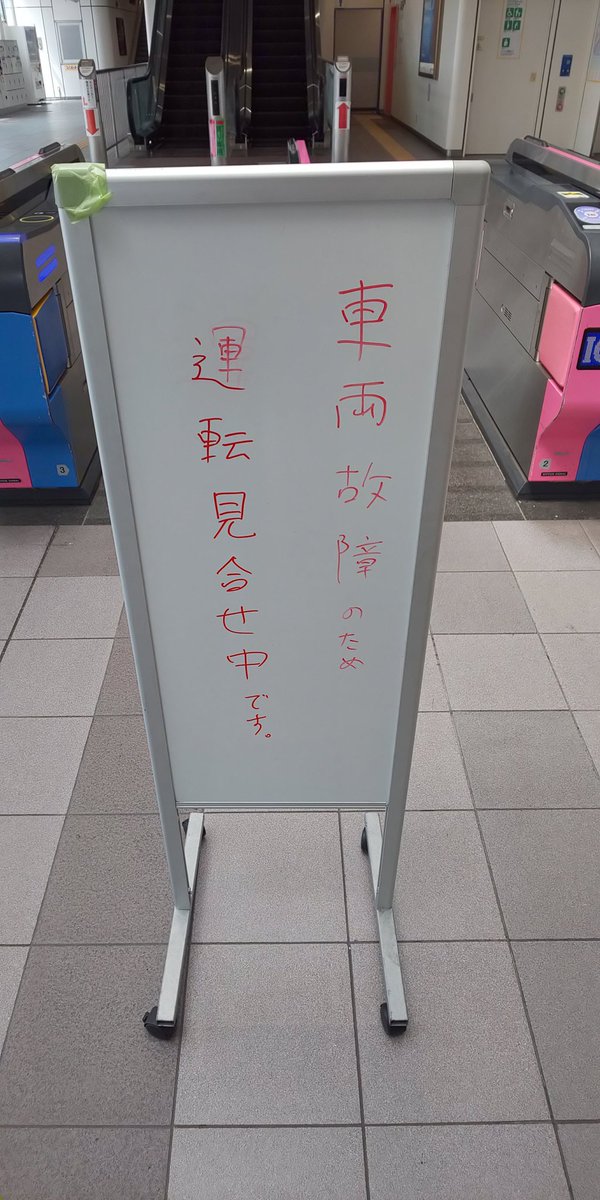 車両故障のため
運転見合せ中です。
3
2
IC